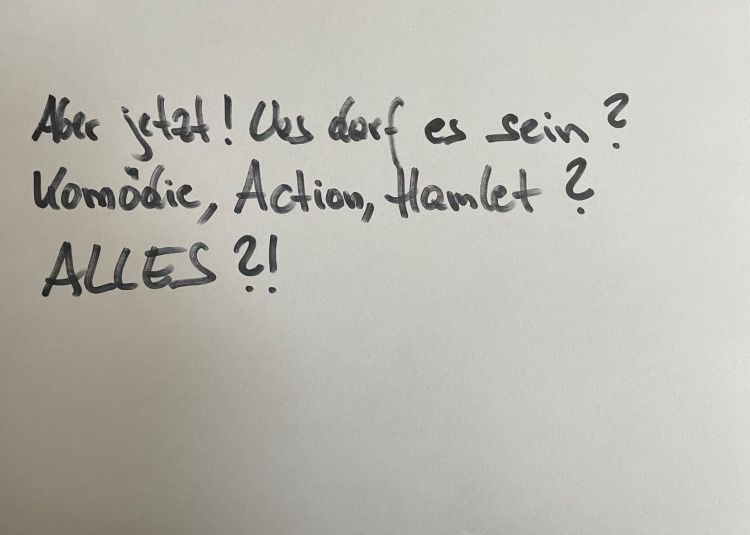 Aber jetzt! Was darf es sein?
Komödie, Action, Hamlet?
ALLES?!